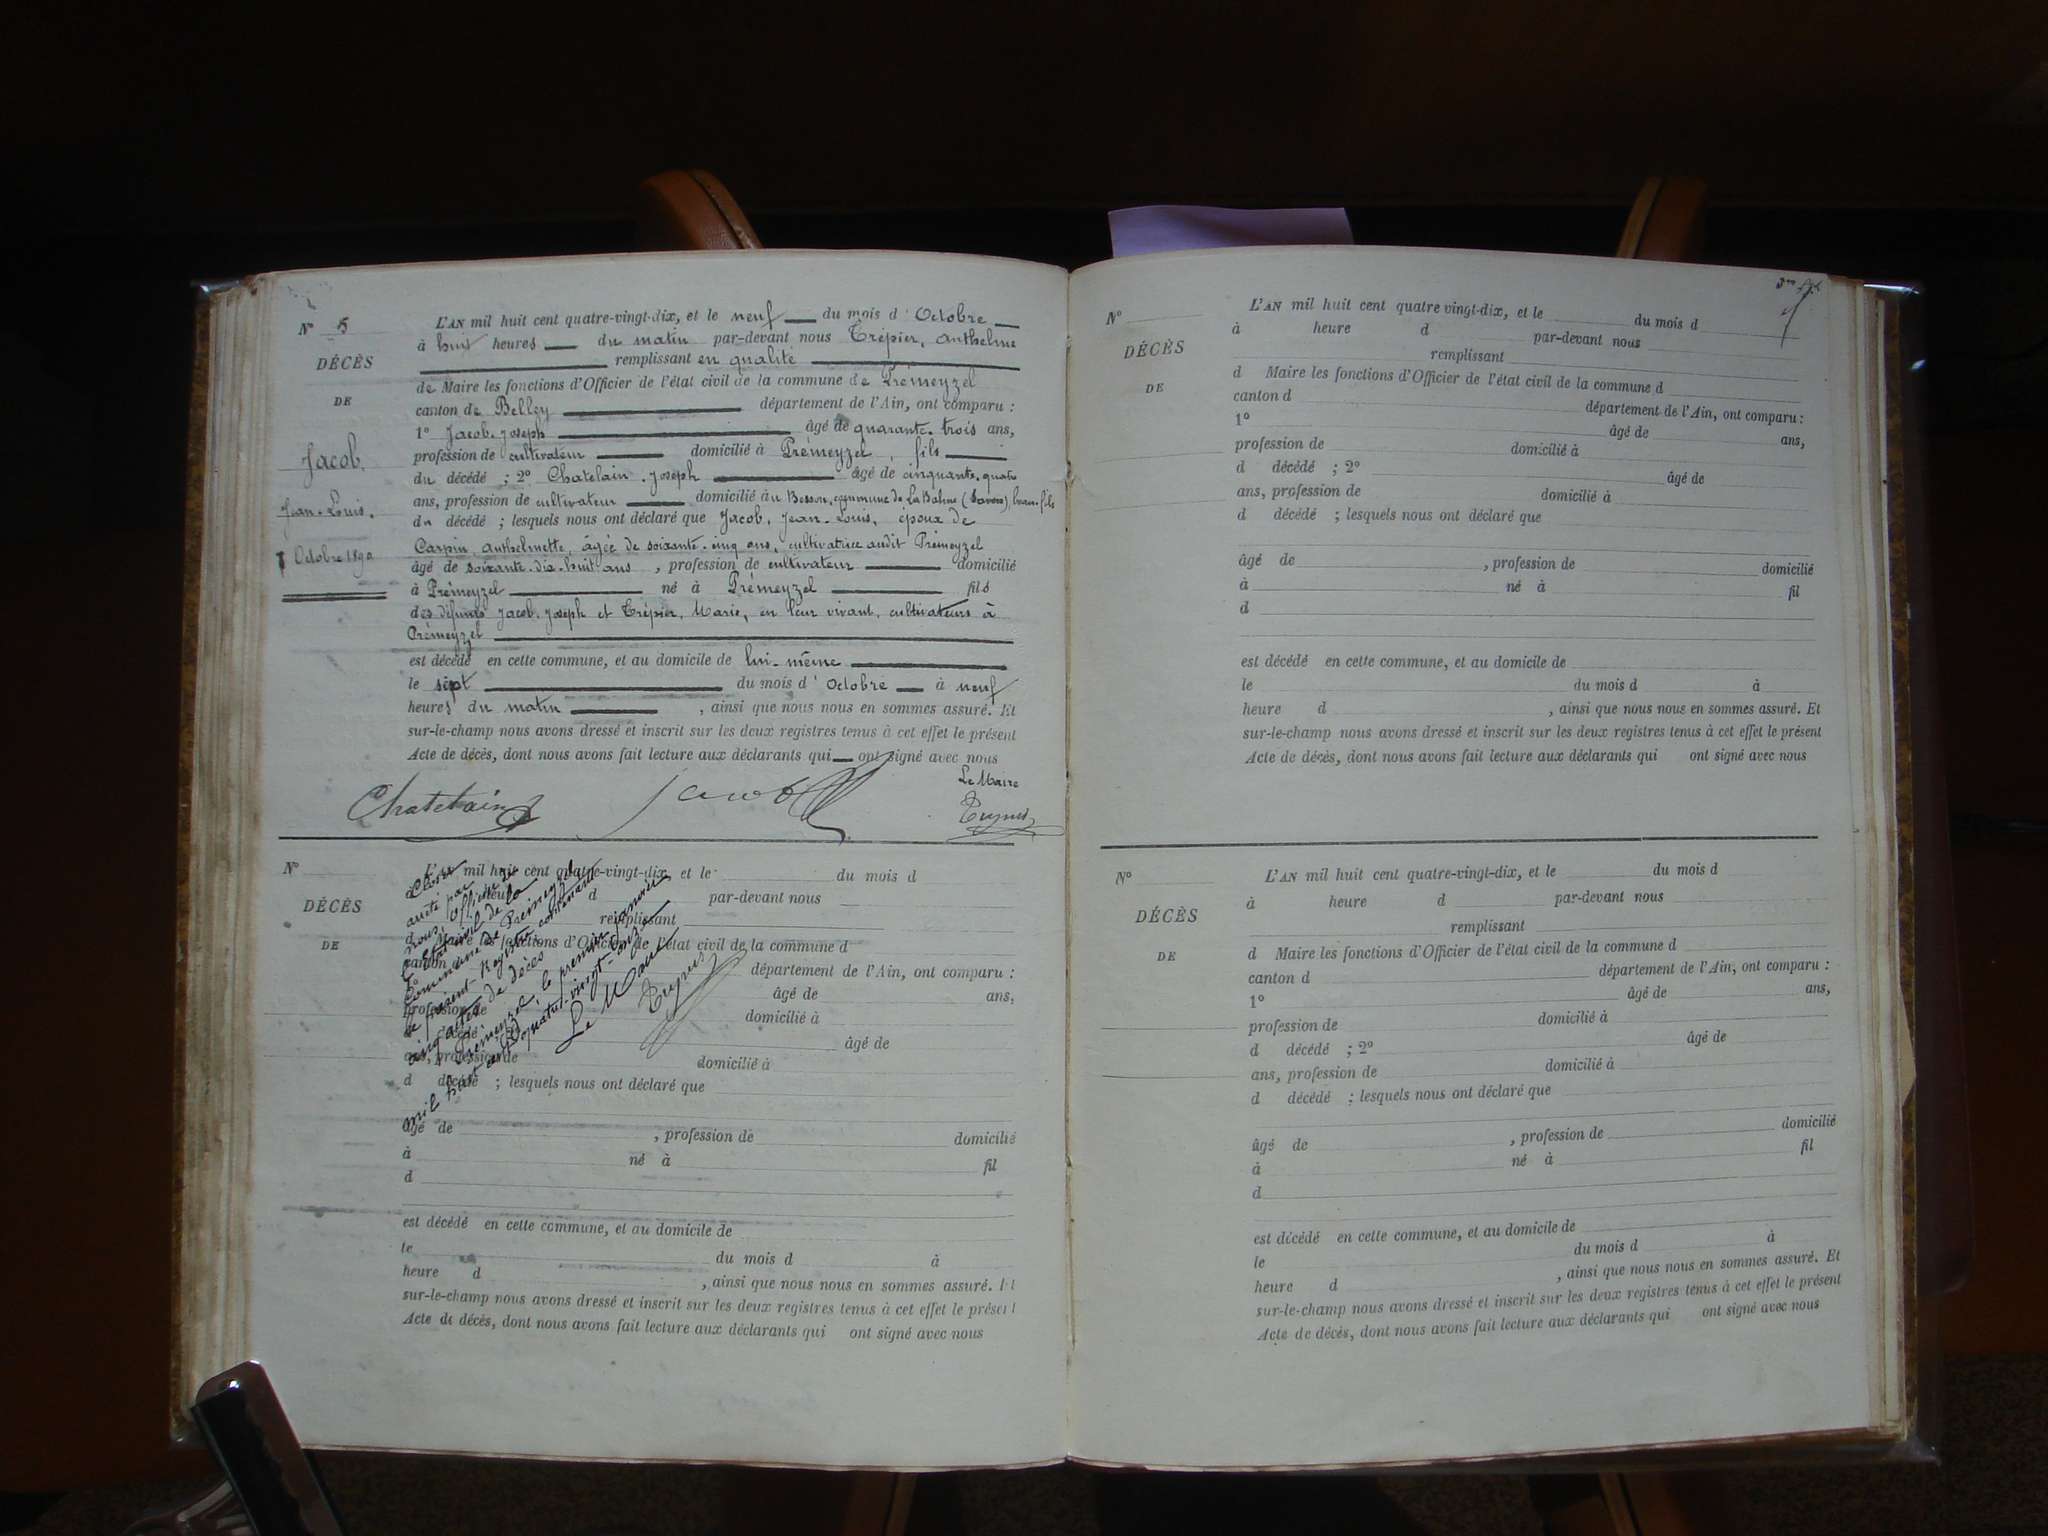 N° 5
DÉCÈS
DE
Jacob.
Jean-Louis.
7 Octobre 1890
L'AN mil huit cent quatre-vingt-dix, et le neuf du mois d'Octobre
à huit heures du matin par-devant nous Trépier, Anthelme
remplissant en qualité
de Maire les fonctions d'Officier de l'état civil de la commune de Prémeyzel
canton de Belley département de l'Ain, ont comparu :
1° Jacob, Joseph âgé de quarante-trois ans,
profession de cultivateur domicilié à Prémeyzel, fils
du décédé ; 2° Chatelain, Joseph âgé de cinquante-quatre
ans, profession de cultivateur domicilié au Besson, commune de La Balme (Savoie), beau-fils
du décédé ; lesquels nous ont déclaré que Jacob, Jean-Louis, époux de
Carpin, anthelmette, âgée de soixante-cinq ans, cultivatrice audit Prémeyzel
âgé de soixante-dix-huit ans, profession de cultivateur domicilié
à Prémeyzel né à Prémeyzel fils
des défunts Jacob, Joseph et Trépier, Marie, en leur vivant, cultivateurs à
Prémeyzel
est décédé en cette commune, et au domicile de lui-même
le sept du mois d'Octobre à neuf
heures du matin, ainsi que nous nous en sommes assuré. Et
sur-le-champ nous avons dressé et inscrit sur les deux registres tenus à cet effet le présent
Acte de décès, dont nous avons fait lecture aux déclarants qui ont signé avec nous
Le Maire
Chatelain Jacob
N°
DÉCÈS
DE
L'AN mil huit cent quatre-vingt-dix, et le du mois d
heure d par-devant nous
remplissant
d Maire les fonctions d'Officier de l'état civil de la commune d
canton d département de l'Ain, ont comparu :
1° âgé de ans,
profession de domicilié à
d décédé ; 2° âgé de
ans, profession de domicilié à
d décédé ; lesquels nous ont déclaré que
âgé de , profession de domicilié
à né à fil
d
est décédé en cette commune, et au domicile de
le du mois d à
heure d , ainsi que nous nous en sommes assuré. Et
sur-le-champ nous avons dressé et inscrit sur les deux registres tenus à cet effet le présent
Acte de décès, dont nous avons fait lecture aux déclarants qui ont signé avec nous
Clos et
arrêté par
nous, Officier de
l'état civil de la
Commune de Prémeyzel
le présent Registre contenant
cinq actes de décès
Prémeyzel, le premier janvier
mil huit cent quatre-vingt-onze
Le Maire
N°
DÉCÈS
DE
L'AN mil huit cent quatre-vingt-dix, et le du mois d
à heure d par-devant nous
remplissant
d Maire les fonctions d'Officier de l'état civil de la commune d
canton d département de l'Ain, ont comparu :
1° âgé de ans,
profession de domicilié à
d décédé ; 2° âgé de
ans, profession de domicilié à
d décédé ; lesquels nous ont déclaré que
âgé de , profession de domicilié
à né à fil
d
est décédé en cette commune, et au domicile de
le du mois d à
heure d , ainsi que nous nous en sommes assuré. Et
sur-le-champ nous avons dressé et inscrit sur les deux registres tenus à cet effet le présent
Acte de décès, dont nous avons fait lecture aux déclarants qui ont signé avec nous
N°
DÉCÈS
DE
L'AN mil huit cent quatre-vingt-dix, et le du mois d
à heure d par-devant nous
remplissant
d Maire les fonctions d'Officier de l'état civil de la commune d
canton d département de l'Ain, ont comparu :
1° âgé de ans,
profession de domicilié à
d décédé ; 2° âgé de
ans, profession de domicilié à
d décédé ; lesquels nous ont déclaré que
âgé de , profession de domicilié
à né à fil
d
est décédé en cette commune, et au domicile de
le du mois d à
heure d , ainsi que nous nous en sommes assuré. Et
sur-le-champ nous avons dressé et inscrit sur les deux registres tenus à cet effet le présent
Acte de décès, dont nous avons fait lecture aux déclarants qui ont signé avec nous